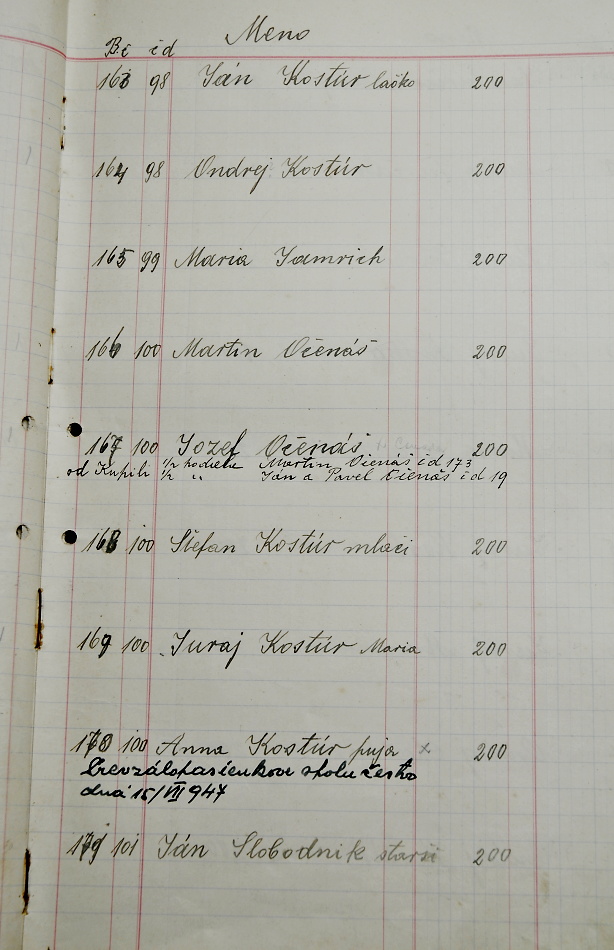 Bč čd Meno
163 98 Ján Kostúr lačko 200
164 98 Ondrej Kostúr 200
165 99 Maria Jamrich 200
166 100 Martin Očenáš 200
167 100 Jozef Očenáš 200
od Kúpili 1/2 podielu Martin Očenáš čd 173
1/2 „ Ján a Pavel Očenáš čd 19
168 100 Štefan Kostúr mlači 200
169 100 Juraj Kostúr Maria 200
170 100 Anna Kostúr x 200
dňa 15/VII 947
101 Ján Slobodnik starši 200